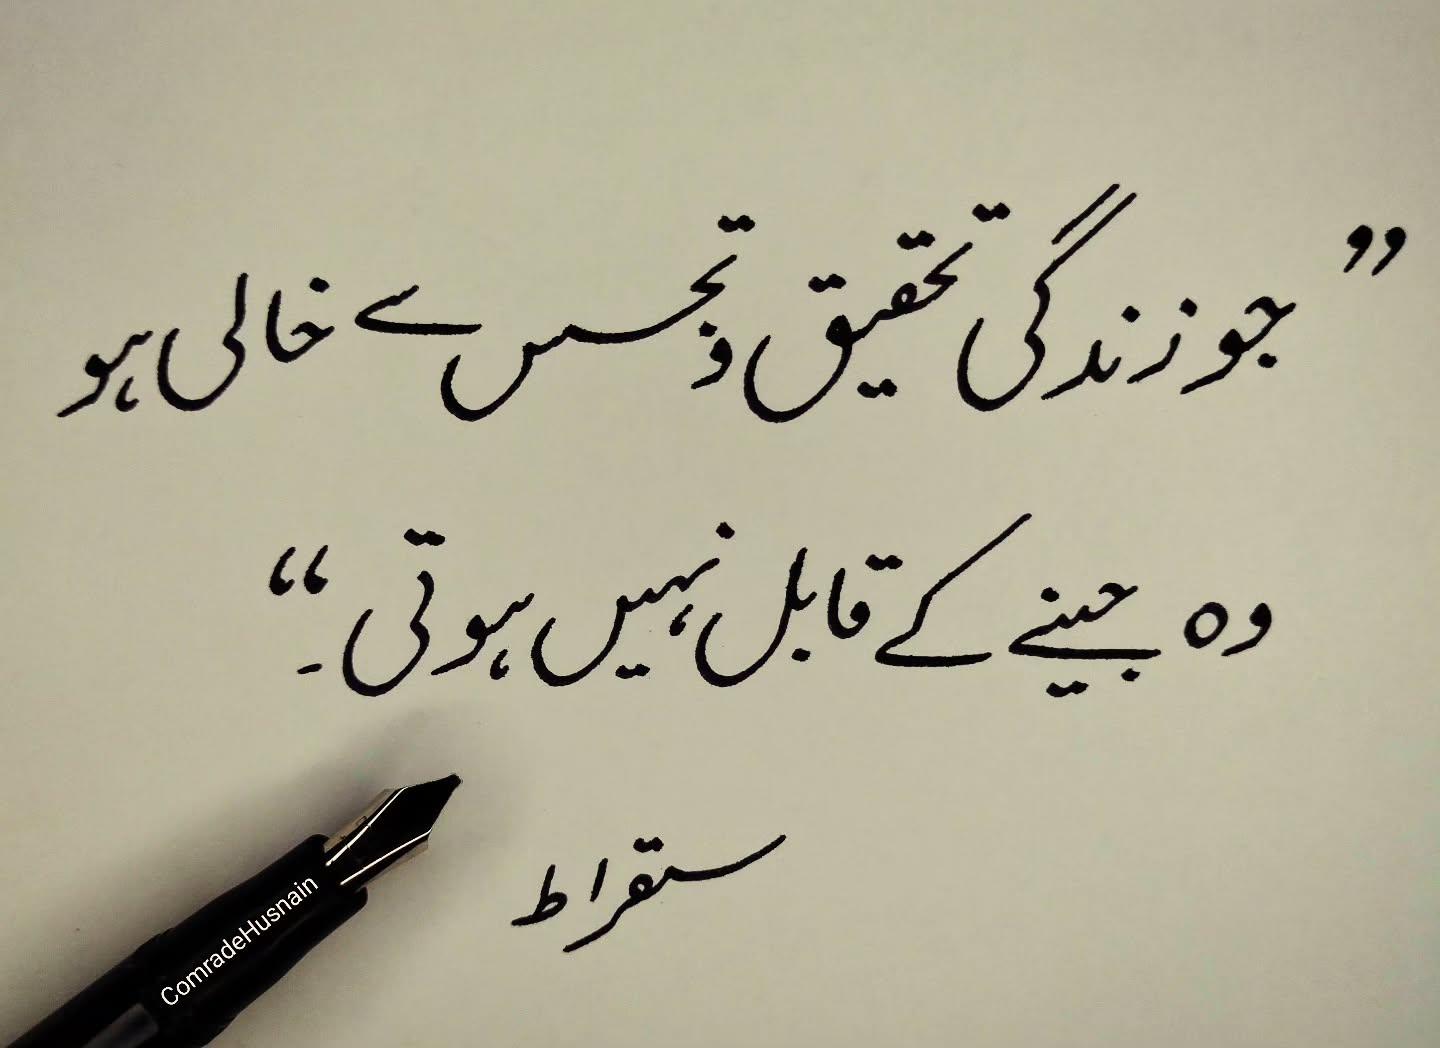 ”جو زندگی تحقیق و تجسس سے خالی ہو
وہ جینے کے قابل نہیں ہوتی۔“
سقراط
ComradeHusnain